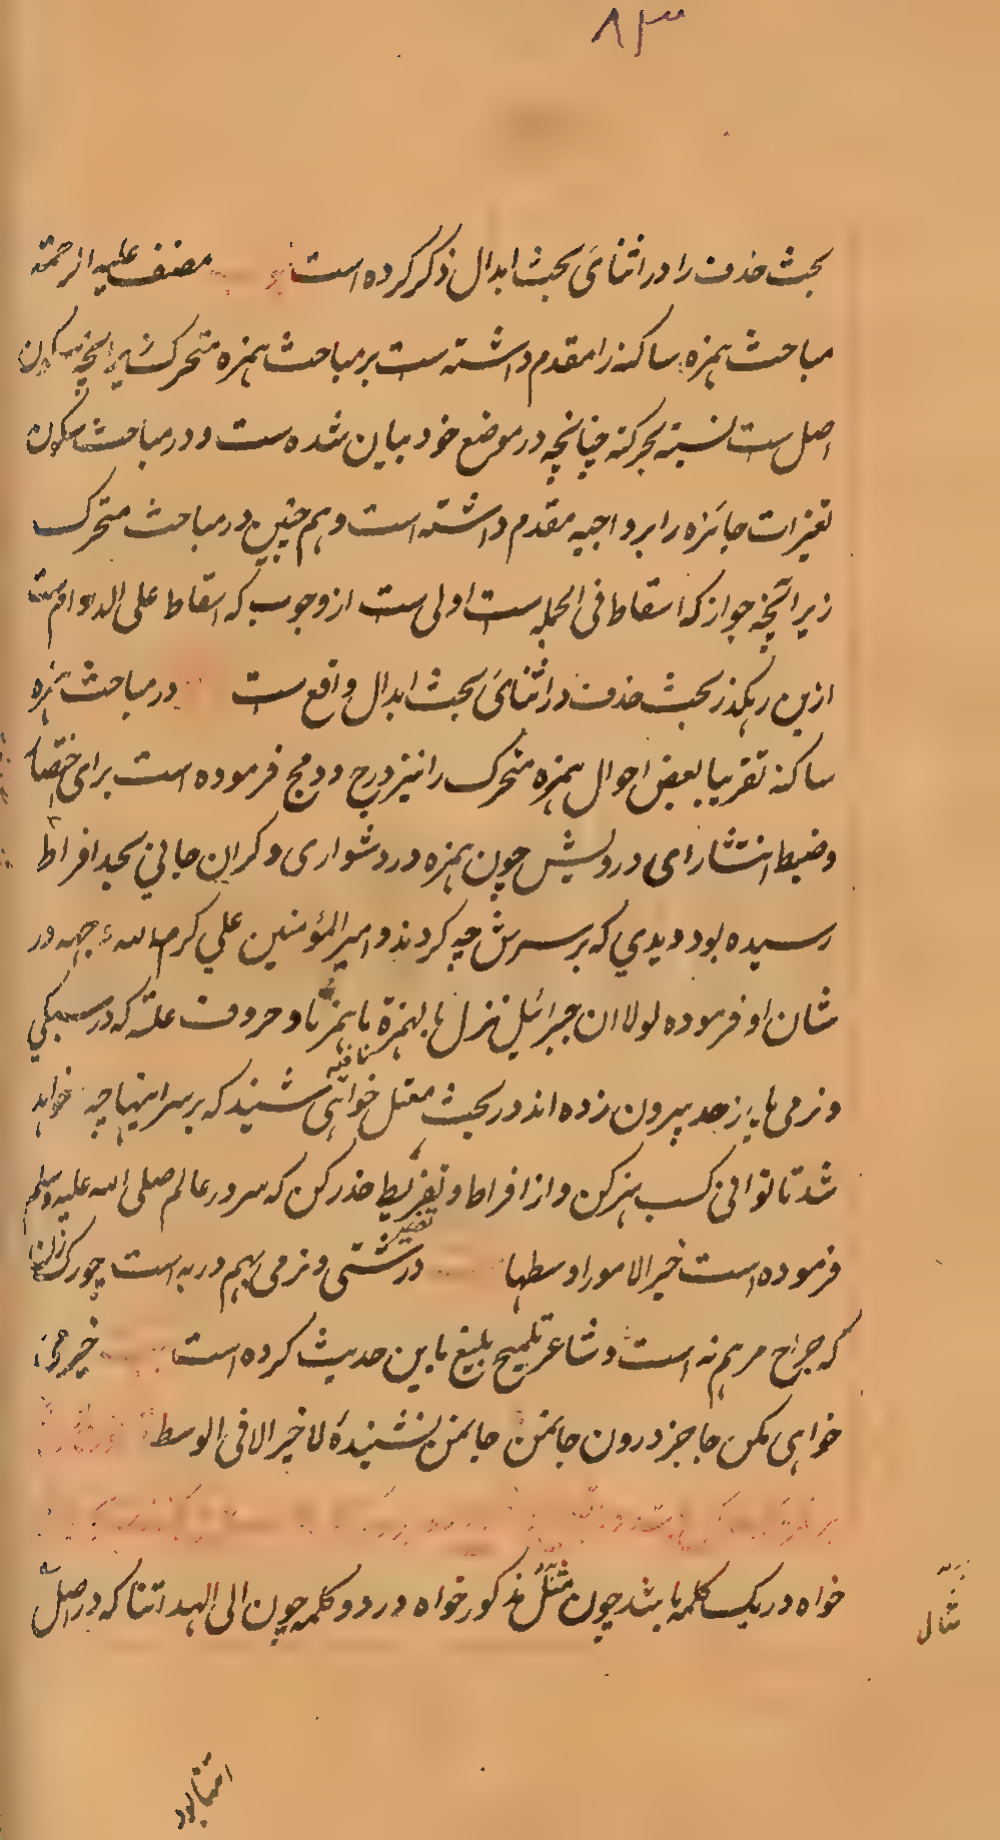 ۸۳
بحث حذف را در اثنائ بحث ابدال ذکر کرده است مصنف علیه الرحمة
مباحث همزه ساکنه را مقدم داشته ست بر مباحث همزه متحرک زیرانچه سکون
اصل ست نسبت بحرکت چنانچه در موضع خود بیان شده ست و در مباحث سکون
تغیرات جائزه را بر واجبه مقدم داشته است و هم چنین در مباحث متحرک
زیرانچه جواز که اسقاط فی الجمله ست اولی ست از وجوب که اسقاط علی الدوام ست
ازین رهگذر بحث حذف در اثنائ بحث ابدال واقع ست در مباحث همزه
ساکنه تقریبا بعض احوال همزه متحرک را نیز درج و دمج فرموده است برای اختصار
وضبط انتشار ای درویش چون همزه در دشواری و کران جانی بحد افراط
رسیده بود دیدی که بر سرش چه کردند و امیر المؤمنین علی کرم الله وجهه در
شان او فرموده لولا ان جبرائیل نزل بالهمزة ما همزنا و حروف علة که در سبکی
و نرمی پا از حد بیرون زده اند در بحث معتل خواهی شنید که بر سر اینها چه خواهد
شد تا توانی کسب هنر کن و از افراط و تفریط حذر کن که سرور عالم صلی الله علیه وسلم
فرموده است خیر الامور اوسطها درشتی و نرمی بهم در به است چو رک زن
که جراح مرهم نه است و شاعر تلمیح بلیغ باین حدیث کرده است خیر می
خواهی مکن جا جز درون جان من جان من نشنیدۀ لا خیر الا فی الوسط
خواه در یک کلمه باشد چون مثل مذکور خواه در دو کلمه چون الی الهد اتنا که در اصل
مثال
ائتنا بود